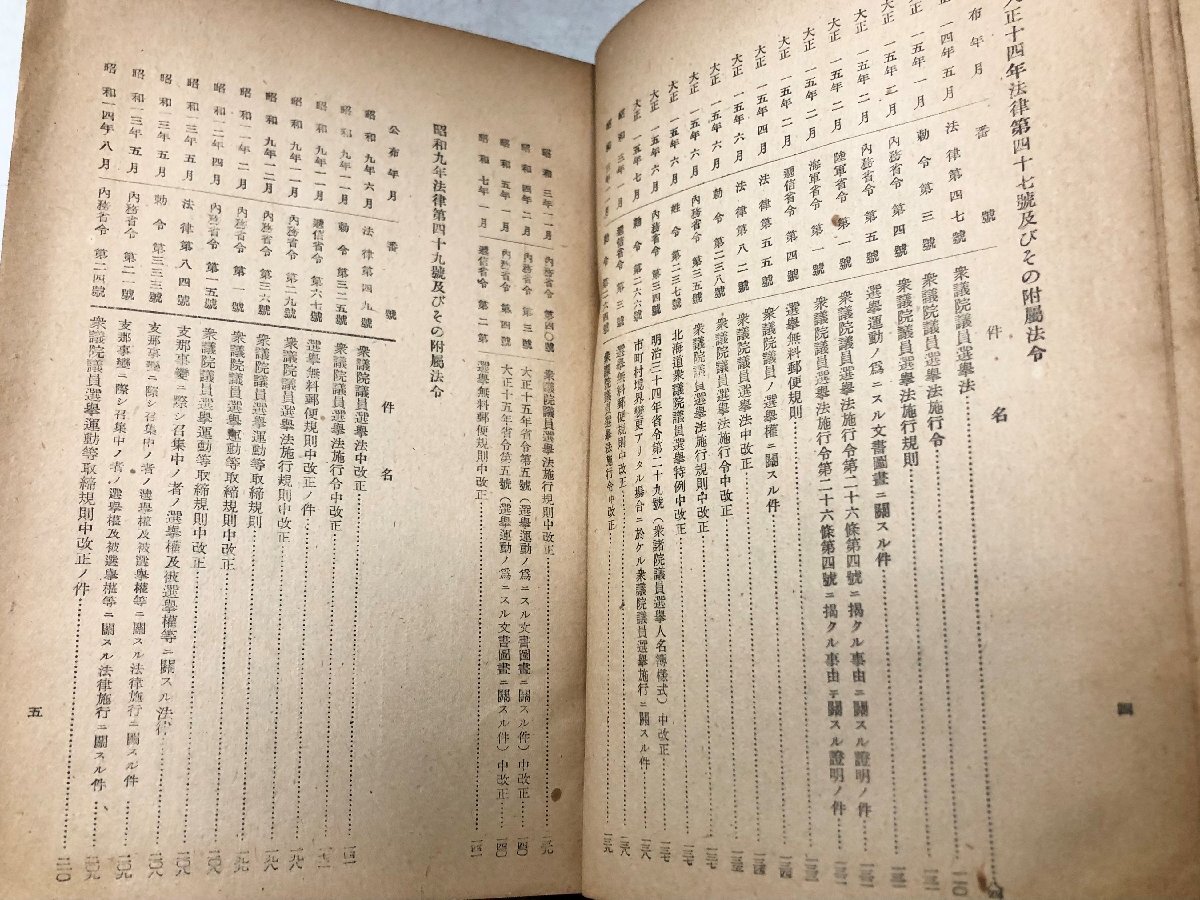 大正十四年法律第四十七號及びその附屬法令
布年月 番號 件名
大正一四年五月 法律第四七號 衆議院議員選擧法
大正一五年一月 勅令第三號 衆議院議員選擧法施行令
大正一五年二月 內務省令第四號 衆議院議員選擧法施行規則
大正一五年二月 內務省令第五號 選擧運動ノ爲ニスル文書圖畫ニ關スル件
大正一五年二月 陸軍省令第一號 衆議院議員選擧法施行令第二十六條第四號ニ揭クル事由ニ關スル證明ノ件
大正一五年二月 海軍省令第一號 衆議院議員選擧法施行令第二十六條第四號ニ揭クル事由ニ關スル證明ノ件
大正一五年二月 遞信省令第四號 選擧無料郵便規則
大正一五年四月 法律第五五號 衆議院議員ノ選擧權ニ關スル件
大正一五年六月 法律第八二號 衆議院議員選擧法中改正
大正一五年六月 勅令第二三八號 衆議院議員選擧法施行令中改正
大正一五年六月 內務省令第三五號 衆議院議員選擧法施行規則中改正
大正一五年六月 勅令第二三七號 北海道衆議院議員選擧特例中改正
大正一五年六月 內務省令第三四號 明治三十四年省令第二十九號(衆議院議員選擧人名簿樣式)中改正
大正一五年七月 勅令第二六六號 市町村境界變更アリタル場合ニ於ケル衆議院議員選擧施行ニ關スル件
昭和三年一月 遞信省令第三號 選擧無料郵便規則中改正
勅令 衆議院議員選擧法施行令中改正
四
昭和三年一月 內務省令第四〇號 衆議院議員選擧法施行規則中改正
昭和四年二月 內務省令第三號 大正十五年省令第五號(選擧運動ノ爲ニスル文書圖畫ニ關スル件)中改正
昭和五年一月 內務省令第四號 大正十五年省令第五號(選擧運動ノ爲ニスル文書圖畫ニ關スル件)中改正
昭和七年一月 遞信省令第二第 選擧無料郵便規則中改正
昭和九年法律第四十九號及びその附屬法令
公布年月 番號 件名
昭和九年六月 法律第四九號 衆議院議員選擧法中改正
昭和九年一一月 勅令第三二五號 衆議院議員選擧法施行令中改正
昭和九年一一月 遞信省令第六七號 選擧無料郵便規則中改正ノ件
昭和九年一一月 內務省令第二九號 衆議院議員選擧法施行規則中改正
昭和九年一二月 內務省令第三六號 衆議院議員選擧運動等取締規則
昭和一一年二月 內務省令第一號 衆議院議員選擧運動等取締規則中改正
昭和一二年四月 內務省令第一五號 衆議院議員選擧運動等取締規則中改正
昭和一三年五月 法律第八四號 支那事變ニ際シ召集中ノ者ノ選擧權及被選擧權等ニ關スル法律
昭和一三年五月 勅令第三三三號 支那事變ニ際シ召集中ノ者ノ選擧權及被選擧權等ニ關スル法律施行ニ關スル件
昭和一三年五月 內務省令第二一號 支那事變ニ際シ召集中ノ者ノ選擧權及被選擧權等ニ關スル法律施行ニ關スル件
昭和一四年八月 內務省令第二四號 衆議院議員選擧運動等取締規則中改正ノ件
五